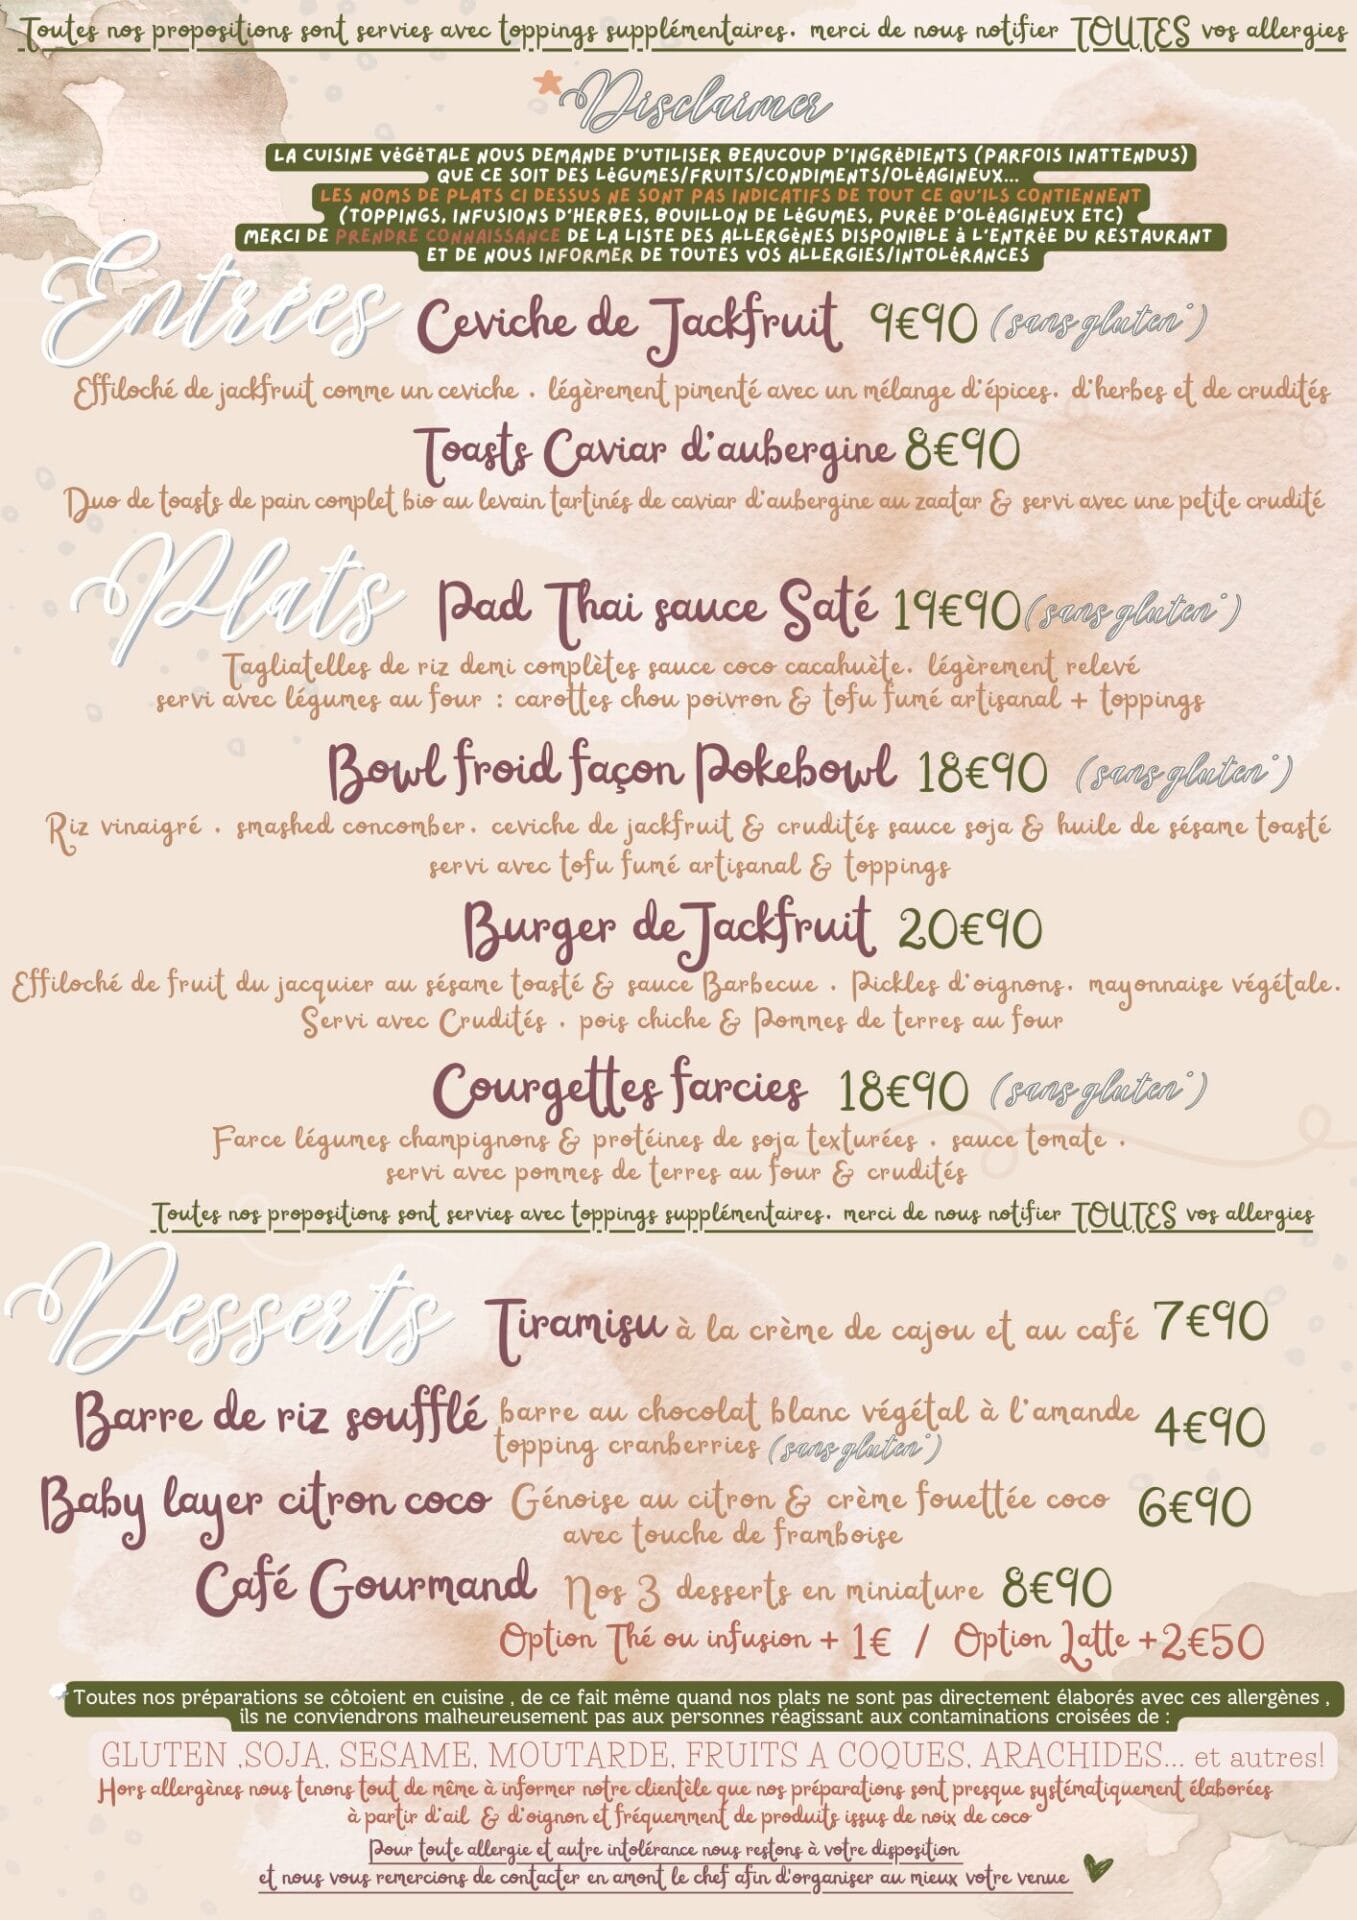 Toutes nos propositions sont servies avec toppings supplémentaires. merci de nous notifier TOUTES vos allergies
*Disclaimer
LA CUISINE VéGéTALE NOUS DEMANDE D'UTILISER BEAUCOUP D'INGRéDIENTS (PARFOIS INATTENDUS)
QUE CE SOIT DES LéGUMES/FRUITS/CONDIMENTS/OLéAGINEUX...
LES NOMS DE PLATS CI DESSUS NE SONT PAS INDICATIFS DE TOUT CE QU'ILS CONTIENNENT
(TOPPINGS, INFUSIONS D'HERBES, BOUILLON DE LéGUMES, PURéE D'OLéAGINEUX ETC)
MERCI DE PRENDRE CONNAISSANCE DE LA LISTE DES ALLERGèNES DISPONIBLE à L'ENTRéE DU RESTAURANT
ET DE NOUS INFORMER DE TOUTES VOS ALLERGIES/INTOLéRANCES
Entrées
Ceviche de Jackfruit 9€90 (sans gluten*)
Effiloché de jackfruit comme un ceviche . légèrement pimenté avec un mélange d'épices. d'herbes et de crudités
Toasts Caviar d'aubergine 8€90
Duo de toasts de pain complet bio au levain tartinés de caviar d'aubergine au zaatar & servi avec une petite crudité
Plats
Pad Thai sauce Saté 19€90 (sans gluten*)
Tagliatelles de riz demi complètes sauce coco cacahuète. légèrement relevé
servi avec légumes au four : carottes chou poivron & tofu fumé artisanal + toppings
Bowl froid façon Pokebowl 18€90 (sans gluten*)
Riz vinaigré . smashed concomber. ceviche de jackfruit & crudités sauce soja & huile de sésame toasté
servi avec tofu fumé artisanal & toppings
Burger de Jackfruit 20€90
Effiloché de fruit du jacquier au sésame toasté & sauce Barbecue . Pickles d'oignons. mayonnaise végétale.
Servi avec Crudités . pois chiche & Pommes de terres au four
Courgettes farcies 18€90 (sans gluten*)
Farce légumes champignons & protéines de soja texturées . sauce tomate .
servi avec pommes de terres au four & crudités
Toutes nos propositions sont servies avec toppings supplémentaires. merci de nous notifier TOUTES vos allergies
Desserts
Tiramisu à la crème de cajou et au café 7€90
Barre de riz soufflé barre au chocolat blanc végétal à l'amande 4€90
topping cranberries (sans gluten*)
Baby layer citron coco Génoise au citron & crème fouettée coco 6€90
avec touche de framboise
Café Gourmand Nos 3 desserts en miniature 8€90
Option Thé ou infusion + 1€ / Option Latte +2€50
*Toutes nos préparations se côtoient en cuisine , de ce fait même quand nos plats ne sont pas directement élaborés avec ces allergènes ,
ils ne conviendrons malheureusement pas aux personnes réagissant aux contaminations croisées de :
GLUTEN ,SOJA, SESAME, MOUTARDE, FRUITS A COQUES, ARACHIDES... et autres!
Hors allergènes nous tenons tout de même à informer notre clientèle que nos préparations sont presque systématiquement élaborées
à partir d'ail & d'oignon et fréquemment de produits issus de noix de coco
Pour toute allergie et autre intolérance nous restons à votre disposition
et nous vous remercions de contacter en amont le chef afin d'organiser au mieux votre venue